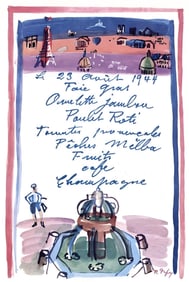 23 août 1944
Foie gras
Omelette jambon
Poulet Roti
Tomates provencales
Pêches Melba
Fruits
café
Champagne